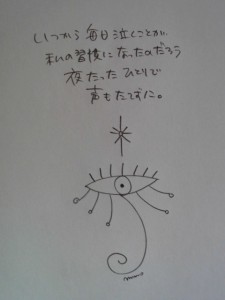 いつから毎日泣くことが、
私の習慣になったのだろう
夜たったひとりで
声もたてずに。